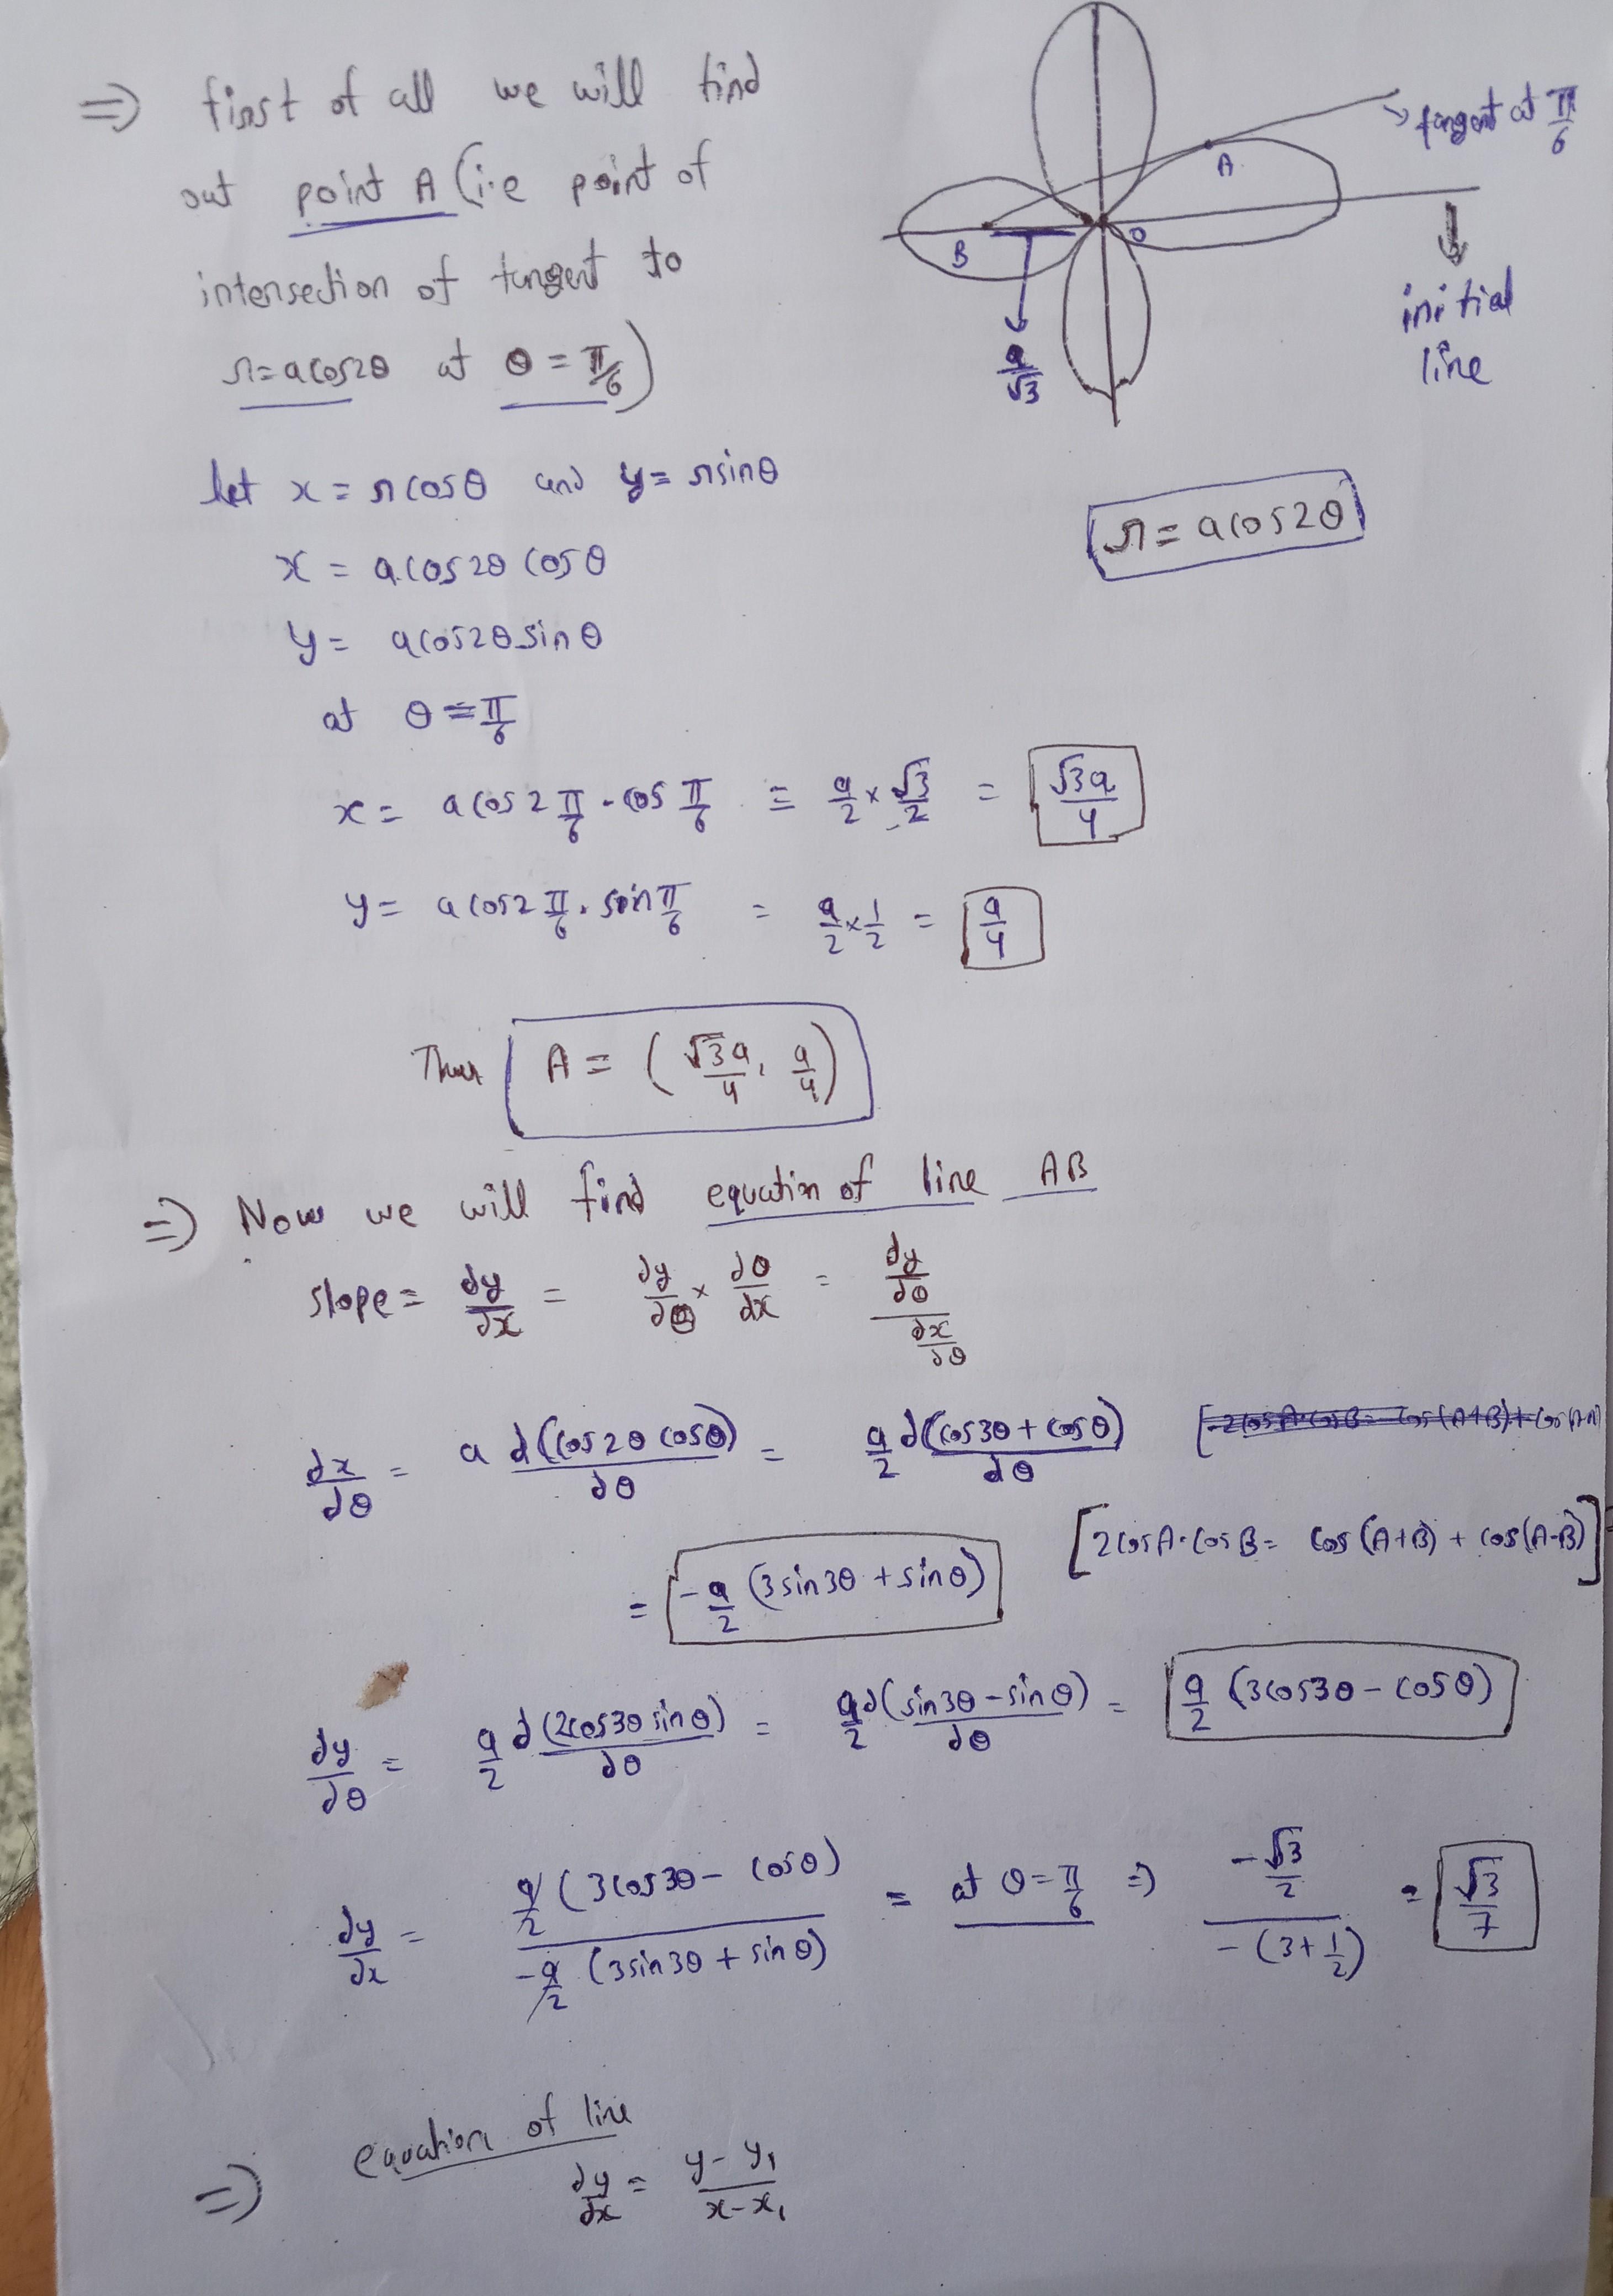 ⇒ first of all we will find
out point A (i.e point of
intersection of tangent to
r=acos2θ at θ = π/6)
A
→ tangent at π/6
B
O
a/√3
initial
line
let x = rcosθ and y = rsinθ
r = acos2θ
x = acos2θ cosθ
y = acos2θ sinθ
at θ = π/6
x = acos2 π/6 · cos π/6 = a/2 × √3/2 = √3a/4
y = acos2 π/6 · sin π/6 = a/2 × 1/2 = a/4
Thus A = (√3a/4, a/4)
⇒ Now we will find equation of line AB
slope = dy/dx = dy/dθ × dθ/dx = (dy/dθ)/(dx/dθ)
dx/dθ = a d(cos2θ cosθ)/dθ = a/2 d(cos3θ + cosθ)/dθ
[2cosA·cosB = cos(A+B) + cos(A-B)]
= -a/2 (3sin3θ + sinθ)
dy/dθ = a/2 d(2cos3θ sinθ)/dθ = a/2 d(sin3θ - sinθ)/dθ = a/2 (3cos3θ - cosθ)
dy/dx = a/2 (3cos3θ - cosθ) / -a/2 (3sin3θ + sinθ) = at θ = π/6 ⇒ (-√3/2)/(-(3+1/2)) = √3/7
⇒ equation of line
dy/dx = (y - y₁)/(x - x₁)